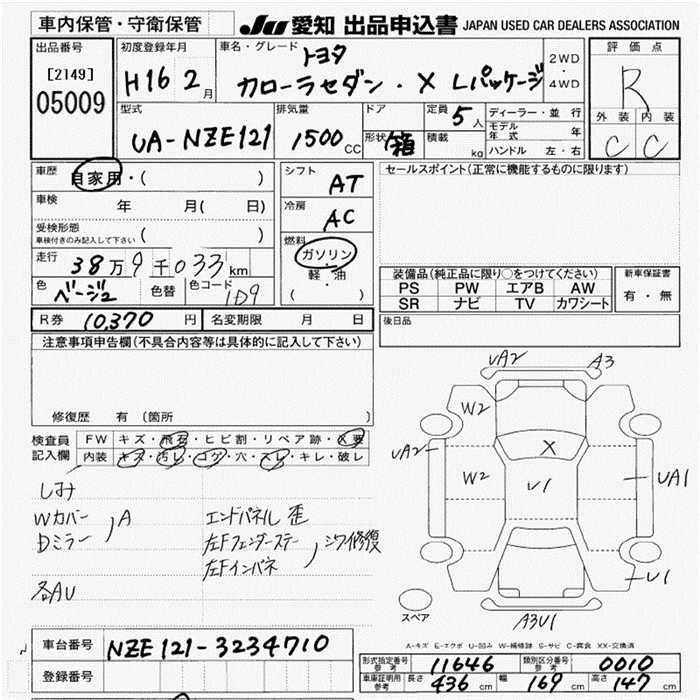 車内保管・守衛保管
JU 愛知 出品申込書 JAPAN USED CAR DEALERS ASSOCIATION
出品番号
[2149]
05009
初度登録年月
H16 2月
車名・グレード
トヨタ
カローラセダン・X Lパッケージ
2WD
・
4WD
評価点
R
外装 内装
C C
型式
UA-NZE121
排気量
1500 CC
ドア
形状 箱
定員 5人
積載 kg
ディーラー・並行
モデル年式 年
ハンドル 左・右
車歴 自家用・( )
車検 年 月( 日)
受検形態
車検付きのみ記入して下さい ( )
走行 38万9千033km
色 ベージュ 色替 色コード 1D9
シフト AT
冷房 AC
燃料
ガソリン
軽・油
( )
セールスポイント(正常に機能するものに限ります)
装備品(純正品に限り○をつけてください)
PS PW エアB AW
SR ナビ TV カワシート
新車保証書
有・無
R券 10,370円 名変期限 月 日
後日品
注意事項申告欄(不具合内容等は具体的に記入して下さい)
修復歴 有 (箇所 )
検査員記入欄
FW キズ・飛石・ヒビ割・リペア跡・X要
内装 キズ・汚レ・コゲ・穴・スレ・キレ・破レ
しみ
Wカバー
Dミラー
A
各AU
エンドパネル 歪
左Fフェンダーステー
左Fインパネ
シワ修復
UA2 A3
W2
UA2
X
W2
U1
UA1
U1
A3U1
スペア
A-キズ E-エクボ U-凹み W-補修跡 S-サビ C-腐食 XX-交換済
車台番号 NZE121-3234710
登録番号
形式指定番号 参考 11646 類別区分番号 参考 0010
車庫証明用 参考 長さ 436cm 幅 169cm 高さ 147cm